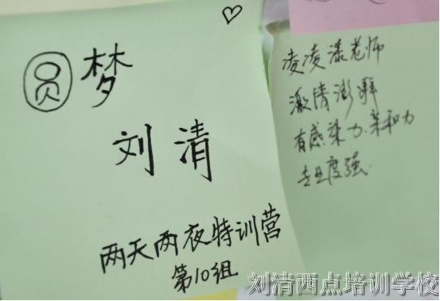 圆梦
刘清
两天两夜特训营
第10组
凌凌漆老师
激情澎湃
有感染力.亲和力
专且度强.
刘清两点培训学校